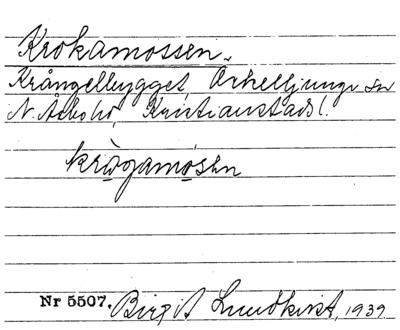 Krokamossen.
Krångelbygget, Örkelljunga sn
N. Åsbo hd, Kristianstads l.
krogamosen
Nr 5507. Birgit Lundkvist, 1939